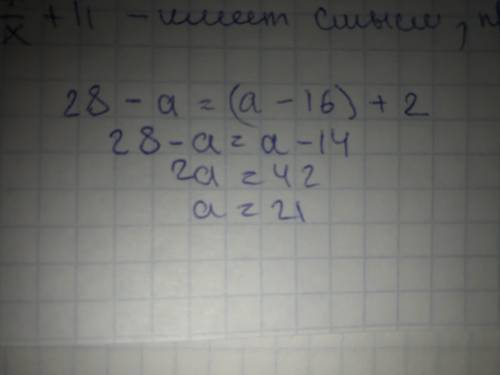 x + 11 - имеет смысл,
28 - a = (a - 16) + 2
28 - a = a - 14
2a = 42
a = 21